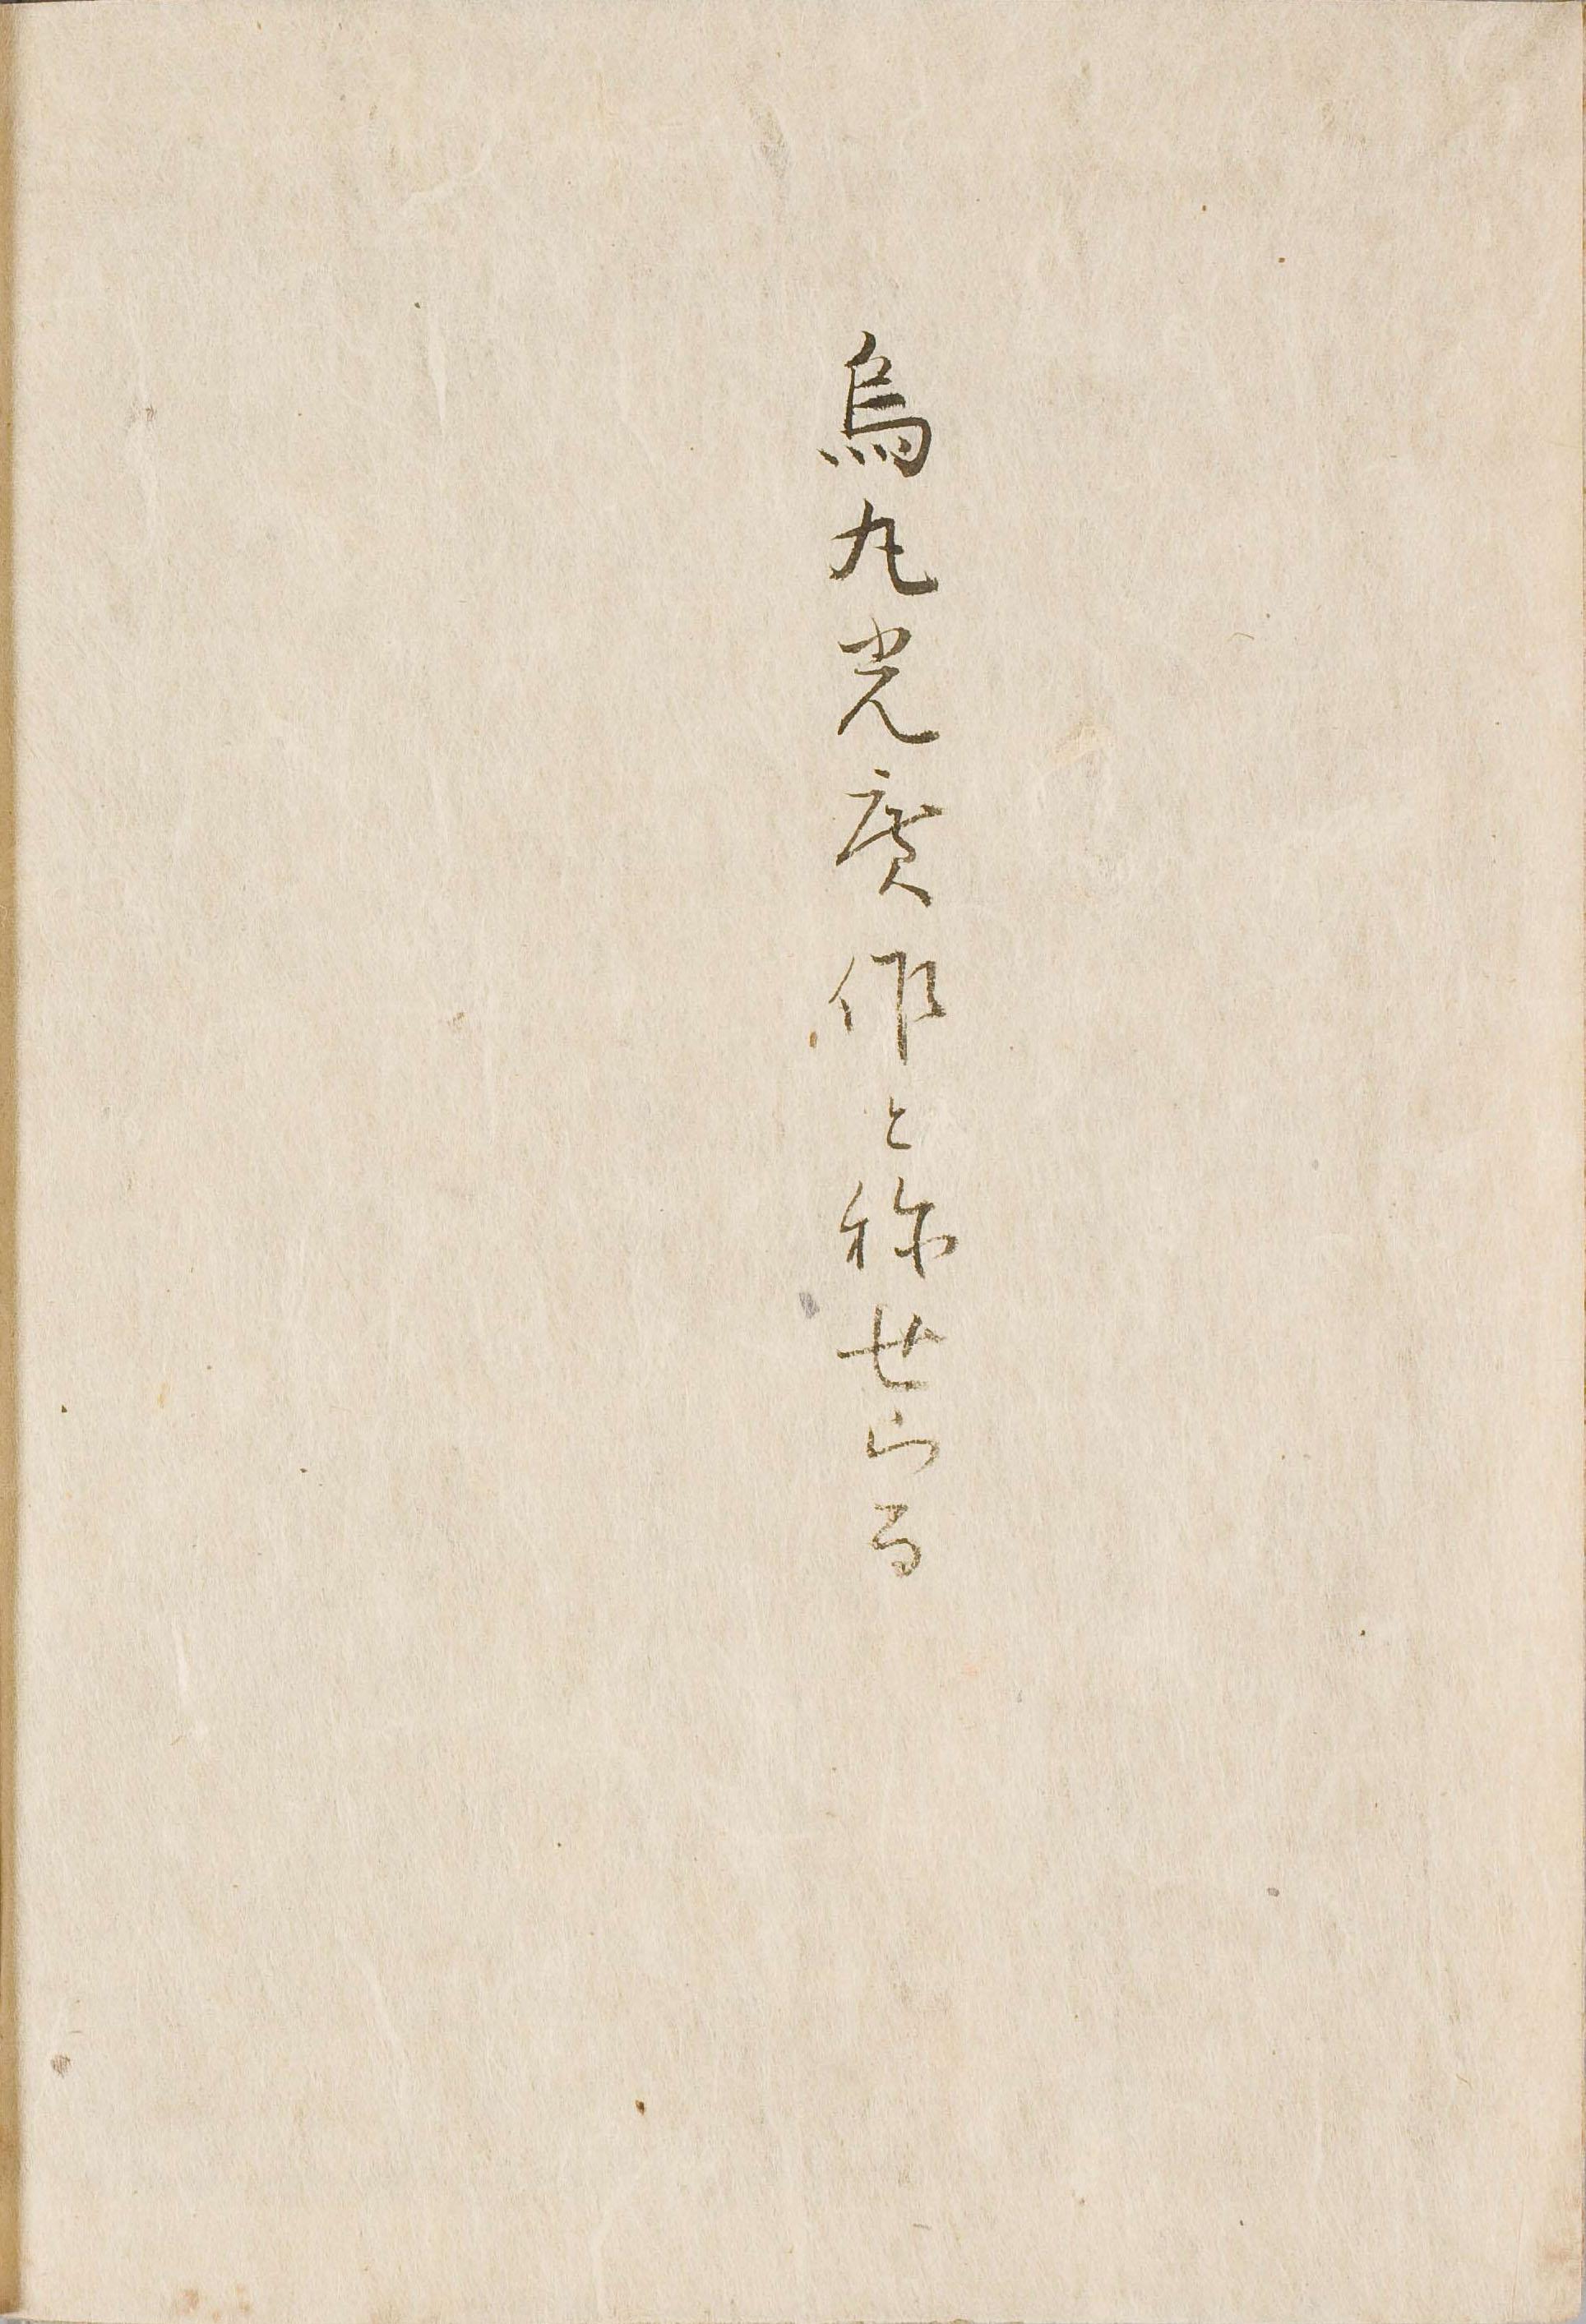 烏丸光廣作と称せらる